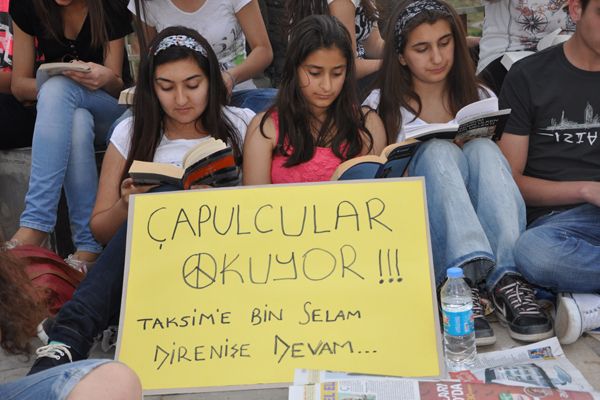 ÇAPULCULAR
OKUYOR!!!
TAKSİM'E BİN SELAM
DİRENİŞE DEVAM...